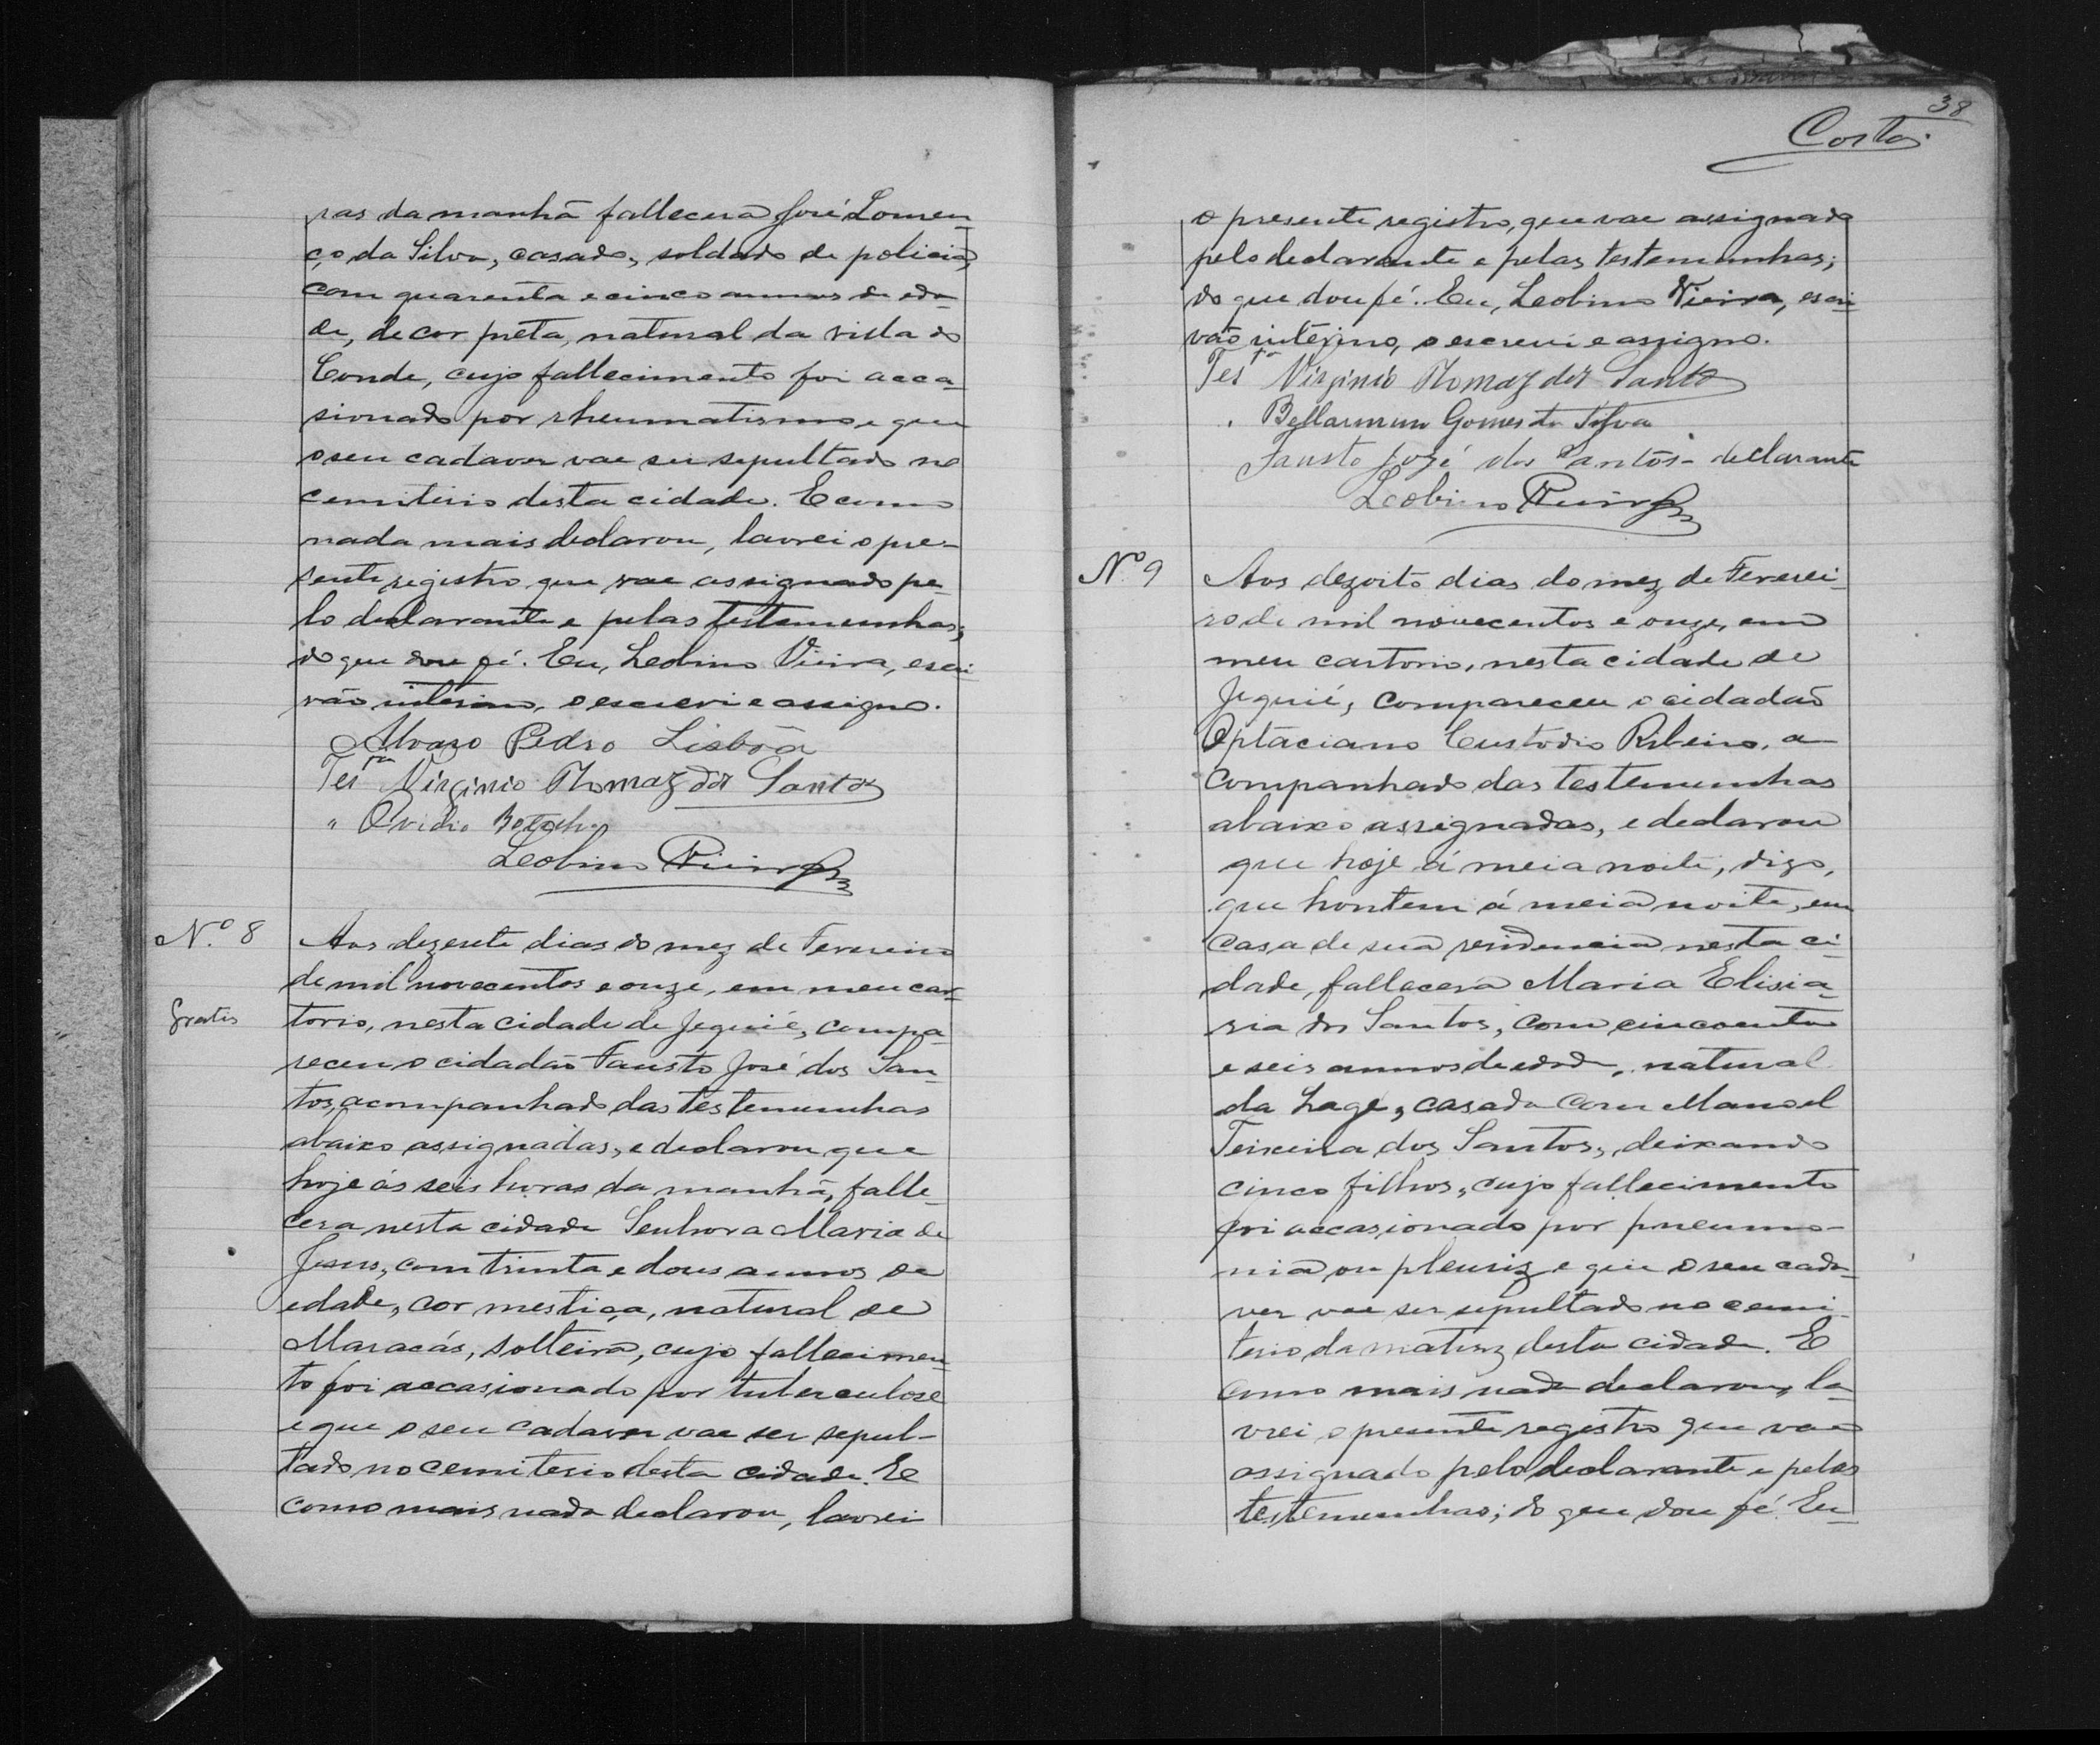 ras da manhã fallecera José Louren-
ço da Silva, casado, soldado de policia,
com quarenta e cinco annos de eda-
de, de cor preta, natural da villa do
Conde, cujo fallecimento foi acca-
sionado por rheumatismo e que
o seu cadaver vae ser sepultado no
cemiterio desta cidade. E como
nada mais declarou, lavrei o pre-
sente registro que vae assignado pe-
lo declarante e pelas testemunhas;
do que dou fé. Eu, Leobino Vieira, escri-
vão interino, o escrevi e assigno.
Alvaro Pedro Lisbôa
Tes^ta Virginio Thomaz dos Santos
" Ovidio Botelho
Leobino Vieira
N.º 8
Aos dezesete dias do mez de Fevereiro
de mil novecentos e onze, em meu car-
Gratis
torio, nesta cidade de Jequié, compa-
receu o cidadão Fausto José dos San-
tos, acompanhado das testemunhas
abaixo assignadas, e declarou que
hoje ás seis horas da manhã, falle-
cera nesta cidade Senhora Maria de
Jesus, com trinta e dous annos de
edade, cor mestiça, natural de
Maracás, solteira, cujo fallecimen-
to foi accasionado por tuberculose
e que o seu cadaver vae ser sepul-
tado no cemiterio desta cidade. E
como mais nada declarou, lavrei
38
Costa
o presente registro, que vae assignado
pelo declarante e pelas testemunhas;
do que dou fé. Eu, Leobino Vieira, escri-
vão interino, o escrevi e assigno.
Tes^ta Virginio Thomaz dos Santos
" Bellarmino Gomes da Silva
Fausto José dos Santos - declarante
Leobino Vieira
N.º 9
Aos dezoito dias do mez de Feverei-
ro de mil novecentos e onze, em
meu cartorio, nesta cidade de
Jequié, compareceu o cidadão
Optaciano Custodio Ribeiro, a-
companhado das testemunhas
abaixo assignadas, e declarou
que hoje á meia noite, digo,
que hontem á meia noite, em
casa de sua residencia nesta ci-
dade, fallecera Maria Elisia-
ria dos Santos, com cincoenta
e seis annos de edade, natural
da Lage, casada com Manoel
Teixeira dos Santos, deixando
cinco filhos, cujo fallecimento
foi accasionado por pneumo-
nia ou pleuriz e que o seu cada-
ver vae ser sepultado no cemi-
terio da matriz desta cidade. E
como mais nada declarou, la-
vrei o presente registro que vae
assignado pelo declarante e pelas
testemunhas; do que dou fé. Eu-